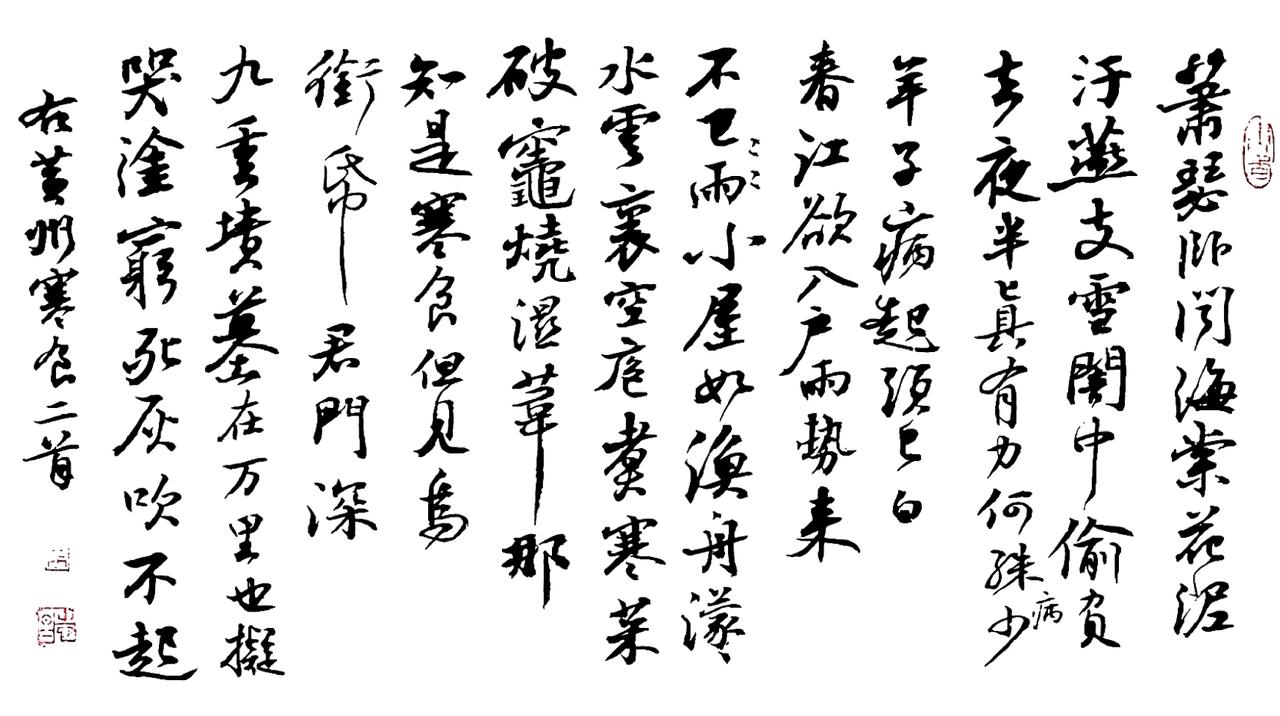 蕭瑟卧聞海棠花泥
汙燕支雪闇中偷負
去夜半眞有力何殊病少
年子病起頭已白
春江欲入戶雨勢來
不已雨小屋如漁舟濛〻
水雲裏空庖煮寒菜
破竈燒濕葦那
知是寒食但見烏
銜帋君門深
九重墳墓在万里也擬
哭塗窮死灰吹不起
右黄州寒食二首